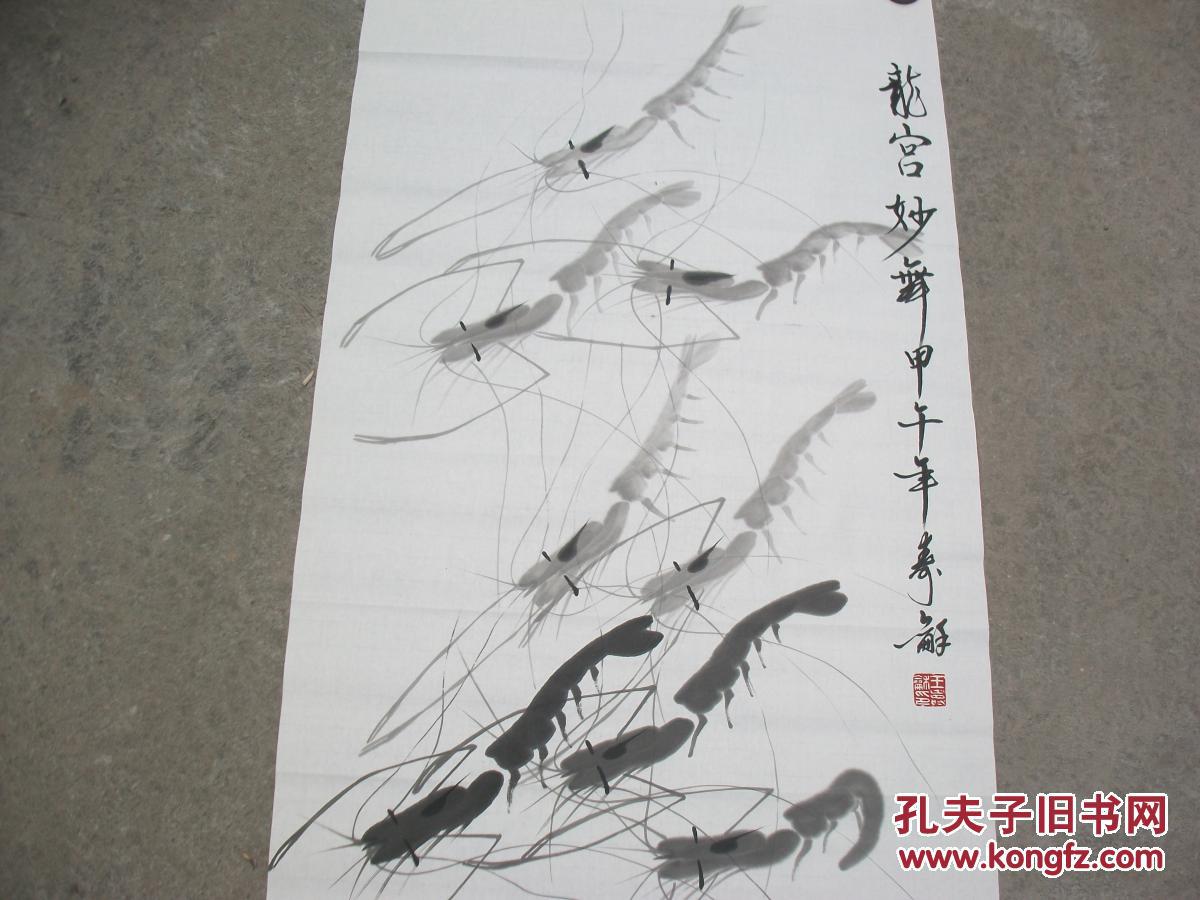 龍宮妙舞甲午年寿龢
孔夫子旧书网
www.kongfz.com